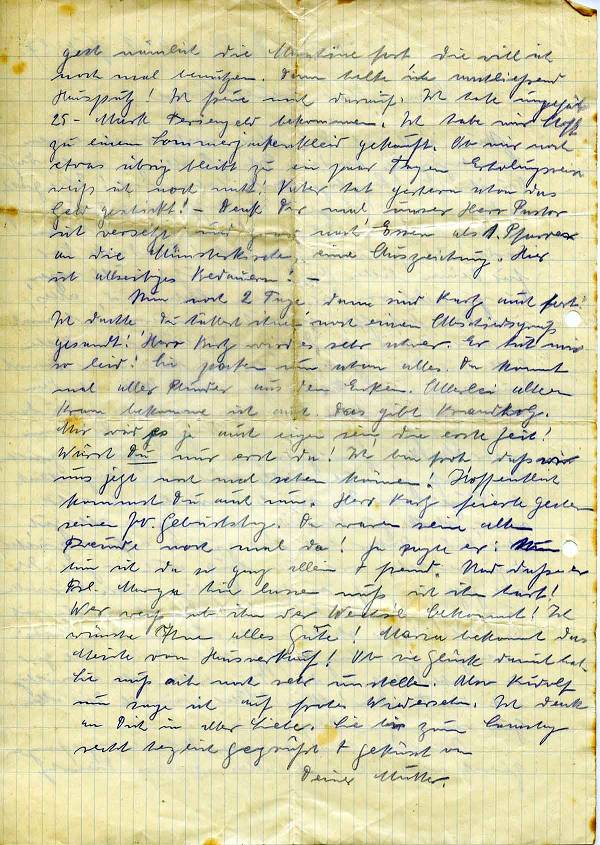 geht nämlich die Maschine fort die will ich
noch mal benutzen. Dann halte ich anschließend
Hausputz! Ich freue mich darauf. Ich habe ungefähr
25 - Mark Feriengeld bekommen. Ich habe mir Stoff
zu einem Sommerjackenkleid gekauft. Ob mir noch
etwas übrig bleibt zu ein paar Tagen Erholungsreise
weiß ich noch nicht! Vater hat gestern schon das
Geld geschickt! - Denk Dir mal, unser Herr Pastor
ist versetzt und zwar nach Essen als 1. Pfarrer
an die Münsterkirche, eine Auszeichnung. Hier
ist allseitiges Bedauern! -
Nun noch 2 Tage dann sind Kurtz auch fort!
Ich dachte Du hättest ihnen noch einen Abschiedsgruß
gesandt! Herr Kurtz wird es sehr schwer. Er tut mir
so leid! Sie packen nun schon alles. Da kommt
mal aller Plunder aus den Ecken. Allerlei alten
Kram bekomme ich auch. Das gibt Brandholz.
Mir wird es ja auch eigen sein die erste Zeit!
Würst Du nur erst da! Ich bin froh daß wir
uns jetzt noch mal sehen können! Hoffentlich
kommst Du auch nun. Herr Kurtz feierte gestern
seinen Geburtstag. Da waren seine alten
Freunde noch mal da! Ja sagte er: Nun
bin ich da so ganz allein + fremd. Und daß er
Frl. Marga hier lassen muß ist ihm hart!
Wer weiß ob ihm der Wechsel bekommt! Ich
wünsche Ihnen alles Gute! Maria bekommt das
Meiste vom Hausverkauf! Ob sie Glück damit hat.
Sie muß sich noch sehr umstellen. Aber Rudolf
nun sage ich auf frohes Wiedersehen. Ich denke
an Dich in aller Liebe. Sei bis zum Samstag
recht herzlich gegrüßt + geküsst von
Deiner Mutter.